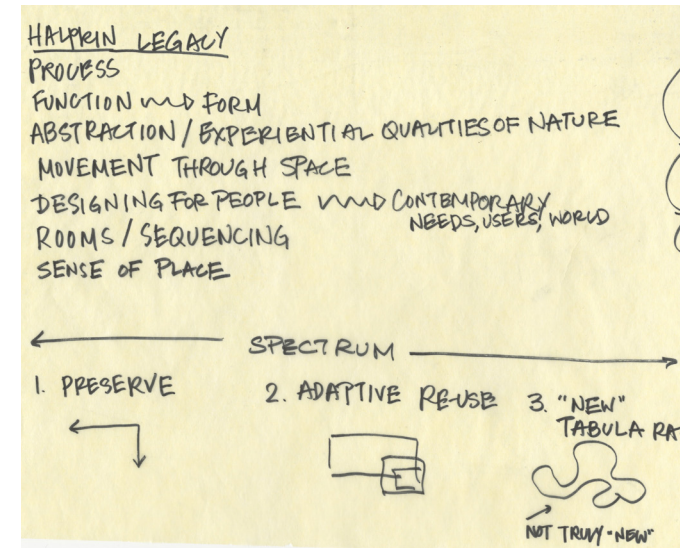 HALPRIN LEGACY
PROCESS
FUNCTION FORM
ABSTRACTION / EXPERIENTIAL QUALITIES OF NATURE
MOVEMENT THROUGH SPACE
DESIGNING FOR PEOPLE CONTEMPORARY
NEEDS, USERS, WORLD
ROOMS / SEQUENCING
SENSE OF PLACE
SPECTRUM
1. PRESERVE
2. ADAPTIVE RE-USE
3. "NEW"
TABULA RA
NOT TRULY "NEW"